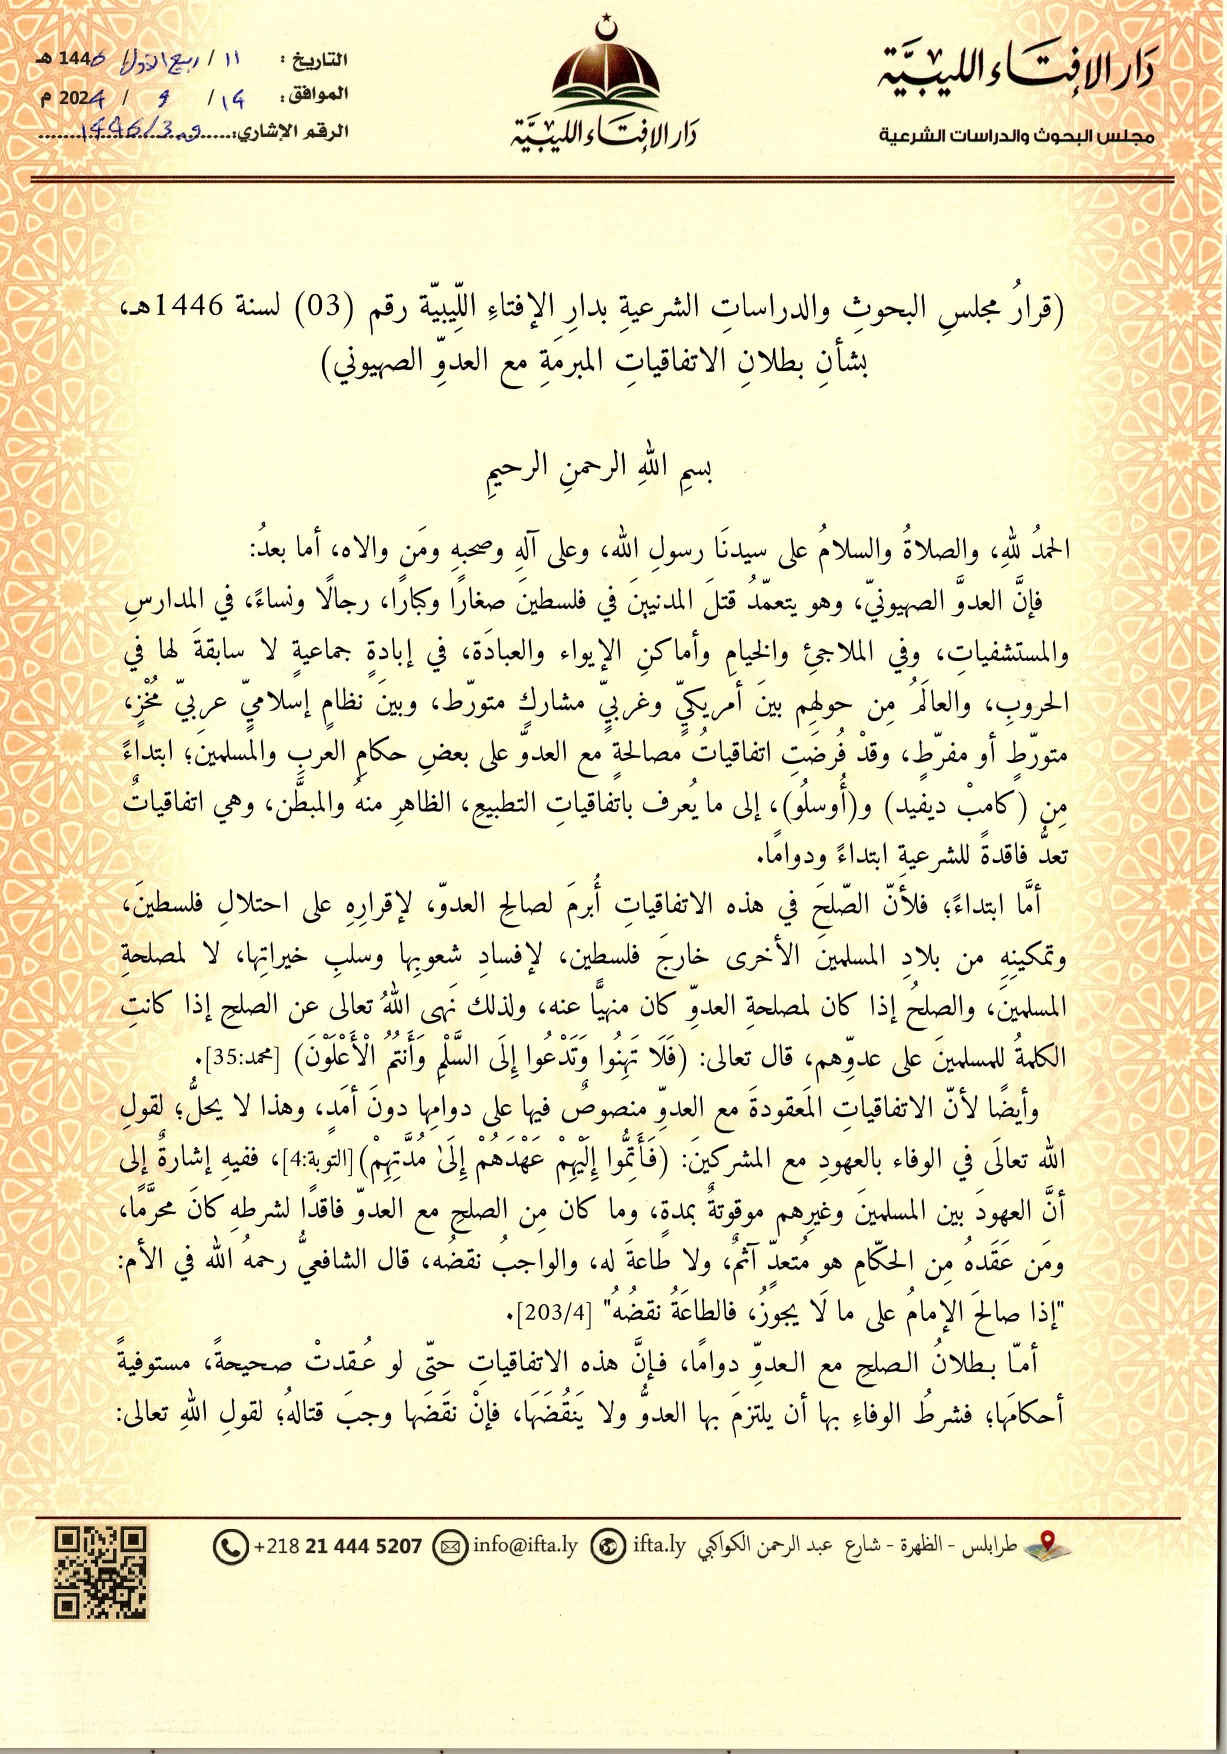 دَار الإفتَاء الليبيَّة
مجلس البحوث والدراسات الشرعية
دَار الإفتَاء الليبيَّة
التاريخ : ١١ / ربيع الأول / 1446 هـ
الموافق: ١٤ / ٩ / 2024 م
الرقم الإشاري:
(قرارُ مجلسِ البحوثِ والدراساتِ الشرعيةِ بدارِ الإفتاءِ اللّيبيّة رقم (03) لسنة 1446هـ،
بشأنِ بطلانِ الاتفاقياتِ المبرمَةِ مع العدوِّ الصهيوني)
بسمِ اللهِ الرحمنِ الرحيمِ
الحمدُ للهِ، والصلاةُ والسلامُ على سيدنَا رسولِ الله، وعلى آلهِ وصحبهِ ومَن والاه، أما بعدُ:
فإنَّ العدوَّ الصهيونيّ، وهو يتعمّدُ قتلَ المدنيينَ في فلسطينَ صغارًا وكبارًا، رجالًا ونساءً، في المدارسِ
والمستشفياتِ، وفي الملاجئِ والخيامِ وأماكنِ الإيواء والعبادَة، في إبادةٍ جماعيةٍ لا سابقةَ لها في
الحروبِ، والعالَمُ مِن حولهِم بينَ أمريكيٍّ وغربيٍّ مشاركٍ متورّط، وبينَ نظامٍ إسلاميٍّ عربيٍّ مُخْزٍ،
متورّطٍ أو مفرّطٍ، وقدْ فُرضَتِ اتفاقياتُ مصالحةٍ مع العدوِّ على بعضِ حكامِ العربِ والمسلمينَ؛ ابتداءً
مِن (كامبْ ديفيد) و(أُوسلُو)، إلى ما يُعرف باتفاقياتِ التطبيعِ، الظاهرِ منهُ والمبطَّن، وهي اتفاقياتٌ
تعدُّ فاقدةً للشرعيةِ ابتداءً ودوامًا.
أمَّا ابتداءً؛ فلأنّ الصّلحَ في هذه الاتفاقياتِ أُبرمَ لصالحِ العدوّ، لإقرارِهِ على احتلالِ فلسطينَ،
وتمكينِهِ من بلادِ المسلمينَ الأخرى خارجَ فلسطين، لإفسادِ شعوبِها وسلبِ خيراتِها، لا لمصلحةِ
المسلمينَ، والصلحُ إذا كان لمصلحةِ العدوِّ كان منهيًّا عنه، ولذلك نَهى اللهُ تعالى عن الصلحِ إذا كانتِ
الكلمةُ للمسلمينَ على عدوِّهم، قال تعالى: (فَلَا تَهِنُوا وَتَدْعُوا إِلَى السَّلْمِ وَأَنتُمُ الْأَعْلَوْنَ) [محمد:35].
وأيضًا لأنّ الاتفاقياتِ المَعقودةَ مع العدوِّ منصوصٌ فيها على دوامِها دونَ أمَدٍ، وهذا لا يحلُّ؛ لقولِ
الله تعالَى في الوفاء بالعهودِ مع المشركينَ: (فَأَتِمُّوا إِلَيْهِمْ عَهْدَهُمْ إِلَىٰ مُدَّتِهِمْ)[التوبة:4]، ففيهِ إشارةٌ إلى
أنَّ العهودَ بين المسلمينَ وغيرِهم موقوتةٌ بمدةٍ، وما كان مِن الصلحِ مع العدوِّ فاقدًا لشرطهِ كانَ محرَّمًا،
ومَن عَقَدهُ مِن الحكّامِ هو مُتعدٍّ آثمٌ، ولا طاعةَ له، والواجبُ نقضُه، قال الشافعيُّ رحمهُ الله في الأم:
"إذا صالحَ الإمامُ على ما لَا يجوزُ، فالطاعَةُ نقضُهُ" [203/4].
أمّا بطلانُ الصلحِ مع العدوِّ دوامًا، فإنَّ هذه الاتفاقياتِ حتّى لو عُقدتْ صحيحةً، مستوفيةً
أحكامَها؛ فشرطُ الوفاءِ بها أن يلتزمَ بها العدوُّ ولا يَنقُضَهَا، فإنْ نقَضَها وجبَ قتالهُ؛ لقولِ اللهِ تعالى:
طرابلس - الظهرة - شارع عبد الرحمن الكواكبي ifta.ly info@ifta.ly +218 21 444 5207